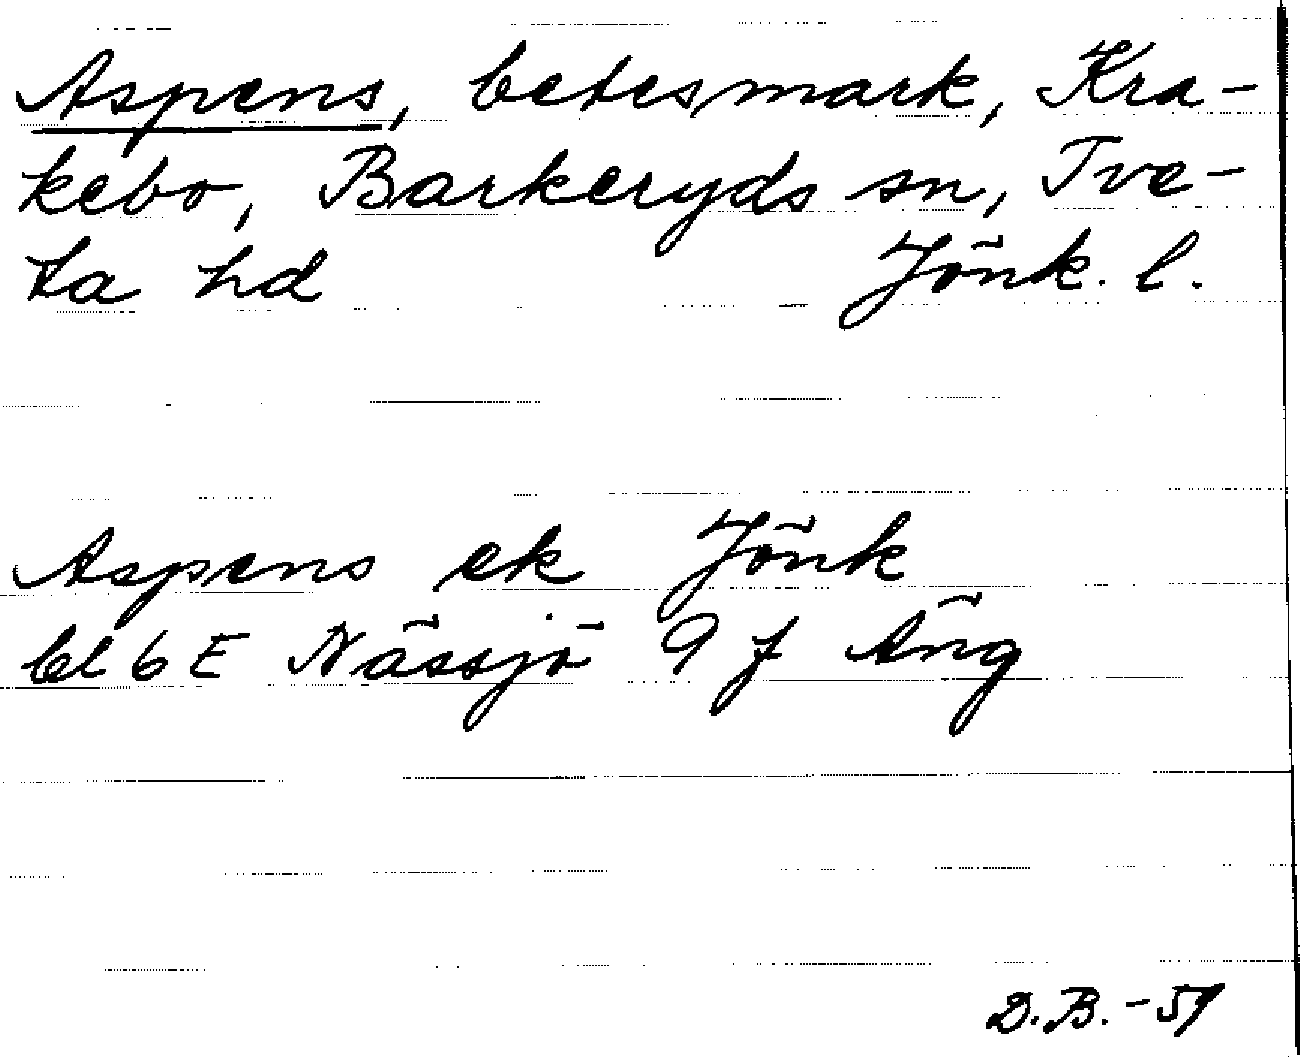 Aspens, betesmark, Kra-
kebo, Barkeryds sn, Tve-
ta hd Jönk. l.
Aspens ek Jönk
bl 6 E Nässjö 9 f Äng
D.B. -59